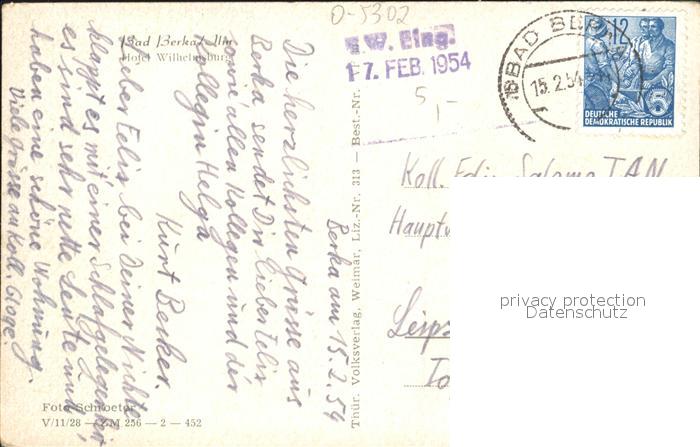 0-5302
Bad Berka / Ilm
Hotel Wilhelmsburg
E.W. Eing.
17. FEB. 1954
5,-
BAD BERKA
15.2.54
12
5
DEUTSCHE
DEMOKRATISCHE REPUBLIK
Berka am 15.2.54
Die herzlichsten Grüsse aus
Berka sendet Dir lieber Felix
sowie allen Kollegen und der
Kollegin Helga
Kurt Becker.
Lieber Felix bei Deiner Nichte
klappt es mit einer Schlafgelegenheit,
es sind sehr nette Leute und
haben eine schöne Wohnung.
Viele Grüsse an Koll.
Thür. Volksverlag, Weimar, Liz.-Nr. 313 — Best.-Nr.
Koll. Felix Salomo TAN
Haupt
Leip
privacy protection
Datenschutz
Foto Schroeter
V/11/28 — ZM 256 — 2 — 452